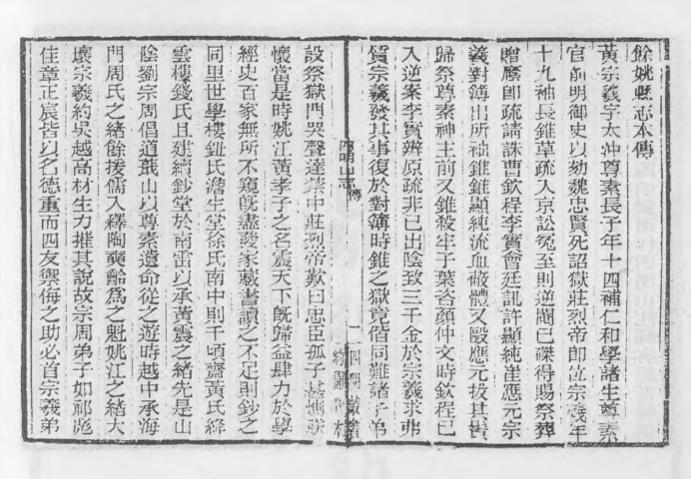 餘姚縣志本傳
黃宗羲字太沖尊素長子年十四補仁和學諸生尊素
官前明御史以劾魏忠賢死詔獄莊烈帝卽位宗羲年
十九袖長錐草疏入京訟冤至則逆閹已磔得賜祭葬
贈廕卽疏請誅曹欽程李實會廷訊許顯純崔應元宗
羲對簿出所袖錐錐顯純流血蔽體又毆應元拔其鬚
歸祭尊素神主前又錐殺牢子葉咨顏仲文時欽程已
入逆案李實辨原疏非已出陰致三千金於宗羲求弗
質宗羲發其事復於對簿時錐之獄竟偕同難諸子弟
四明山志 傳
二 四明叢書
約園刊本
設祭獄門哭聲達禁中莊烈帝歎曰忠臣孤子甚惻朕
懷當是時姚江黃孝子之名震天下旣歸益肆力於學
經史百家無所不窺旣盡發家藏書讀之不足則鈔之
同里世學樓鈕氏澹生堂徐氏南中則千頃齋黃氏絳
雲樓錢氏且建續鈔堂於南雷以承黃震之緒先是山
陰劉宗周倡道蕺山以尊素遺命從之遊時越中承海
門周氏之緒餘援儒入釋陶奭齡爲之魁姚江之緒大
壞宗羲約吳越高材生力摧其說故宗周弟子如祁彪
佳章正宸皆以名德重而四友禦侮之助必首宗羲弟